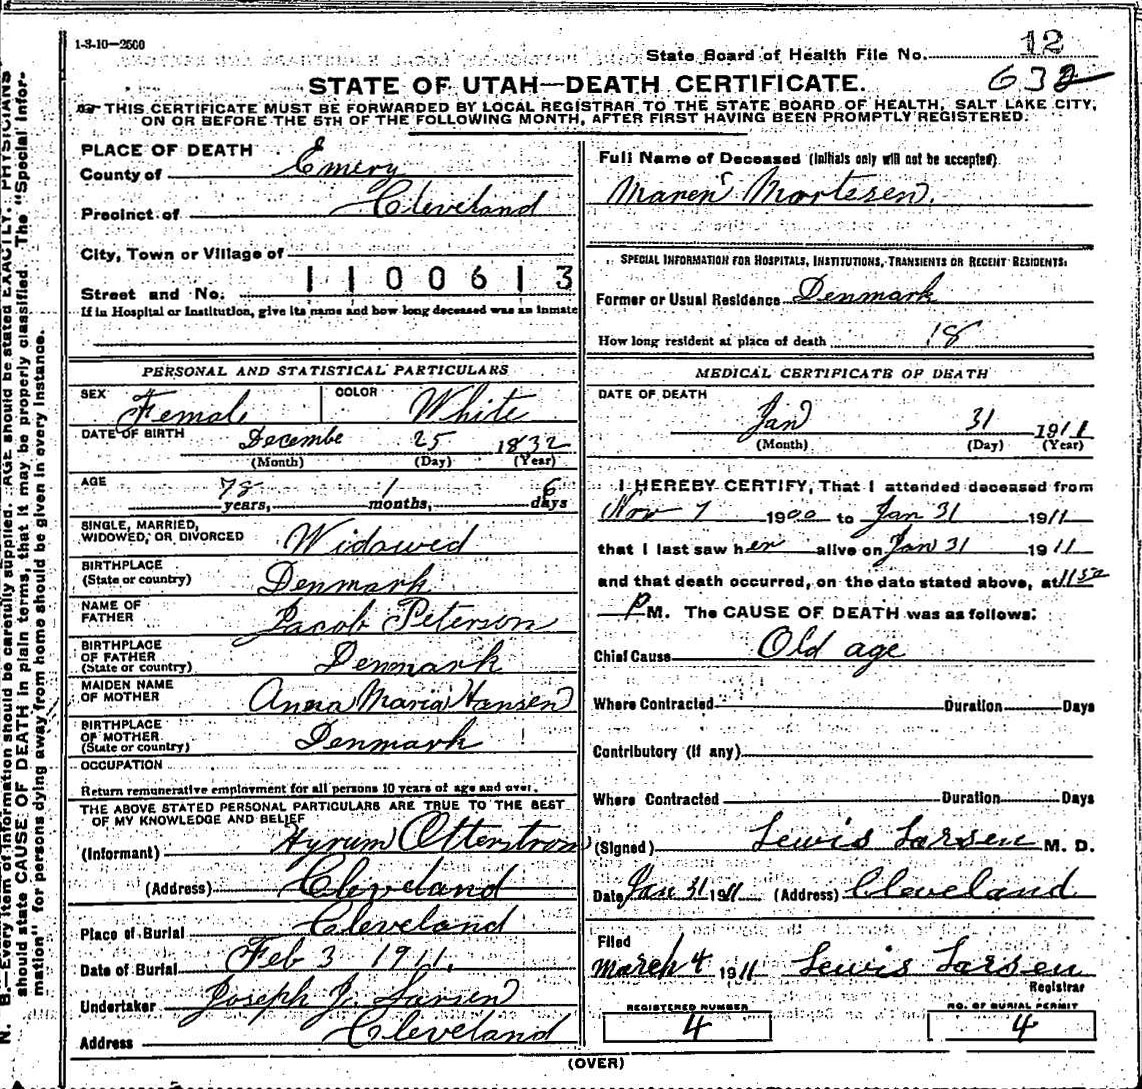 1-3-10—2500
State Board of Health File No. 12
632
STATE OF UTAH—DEATH CERTIFICATE.
THIS CERTIFICATE MUST BE FORWARDED BY LOCAL REGISTRAR TO THE STATE BOARD OF HEALTH, SALT LAKE CITY,
ON OR BEFORE THE 5TH OF THE FOLLOWING MONTH, AFTER FIRST HAVING BEEN PROMPTLY REGISTERED.
PLACE OF DEATH
County of Emery
Precinct of Cleveland
City, Town or Village of
1100613
Street and No.
If in Hospital or Institution, give its name and how long deceased was an inmate
PERSONAL AND STATISTICAL PARTICULARS
SEX Female COLOR White
DATE OF BIRTH Decembe 25 1832
(Month) (Day) (Year)
AGE 78 years, 1 months, 6 days
SINGLE, MARRIED,
WIDOWED, OR DIVORCED Widowed
BIRTHPLACE
(State or country) Denmark
NAME OF
FATHER Jacob Peterson
BIRTHPLACE
OF FATHER
(State or country) Denmark
MAIDEN NAME
OF MOTHER Anna Maria Hansen
BIRTHPLACE
OF MOTHER
(State or country) Denmark
OCCUPATION
Return remunerative employment for all persons 10 years of age and over.
THE ABOVE STATED PERSONAL PARTICULARS ARE TRUE TO THE BEST
OF MY KNOWLEDGE AND BELIEF
(Informant) Hyrum Otterstrom
(Address) Cleveland
Place of Burial Cleveland
Date of Burial Feb 3 1911.
Undertaker Joseph J. Larsen
Address Cleveland
Full Name of Deceased (Initials only will not be accepted)
Maren Mortesen.
SPECIAL INFORMATION FOR HOSPITALS, INSTITUTIONS, TRANSIENTS OR RECENT RESIDENTS:
Former or Usual Residence Denmark
How long resident at place of death 18
MEDICAL CERTIFICATE OF DEATH
DATE OF DEATH
Jan 31 1911
(Month) (Day) (Year)
I HEREBY CERTIFY, That I attended deceased from
Nov 7 1900 to Jan 31 1911
that I last saw her alive on Jan 31 1911
and that death occurred, on the date stated above, at 11 50
P M. The CAUSE OF DEATH was as follows:
Chief Cause Old age
Where Contracted Duration Days
Contributory (if any)
Where Contracted Duration Days
(Signed) Lewis Larsen M. D.
Date Jan 31 1911 (Address) Cleveland
Filed
March 4 1911 Lewis Larsen
Registrar
REGISTERED NUMBER
4
NO. OF BURIAL PERMIT
4
(OVER)
N. B.—Every item of information should be carefully supplied. AGE should be stated EXACTLY. PHYSICIANS
should state CAUSE OF DEATH in plain terms, that it may be properly classified. The "Special Infor-
mation" for persons dying away from home should be given in every instance.